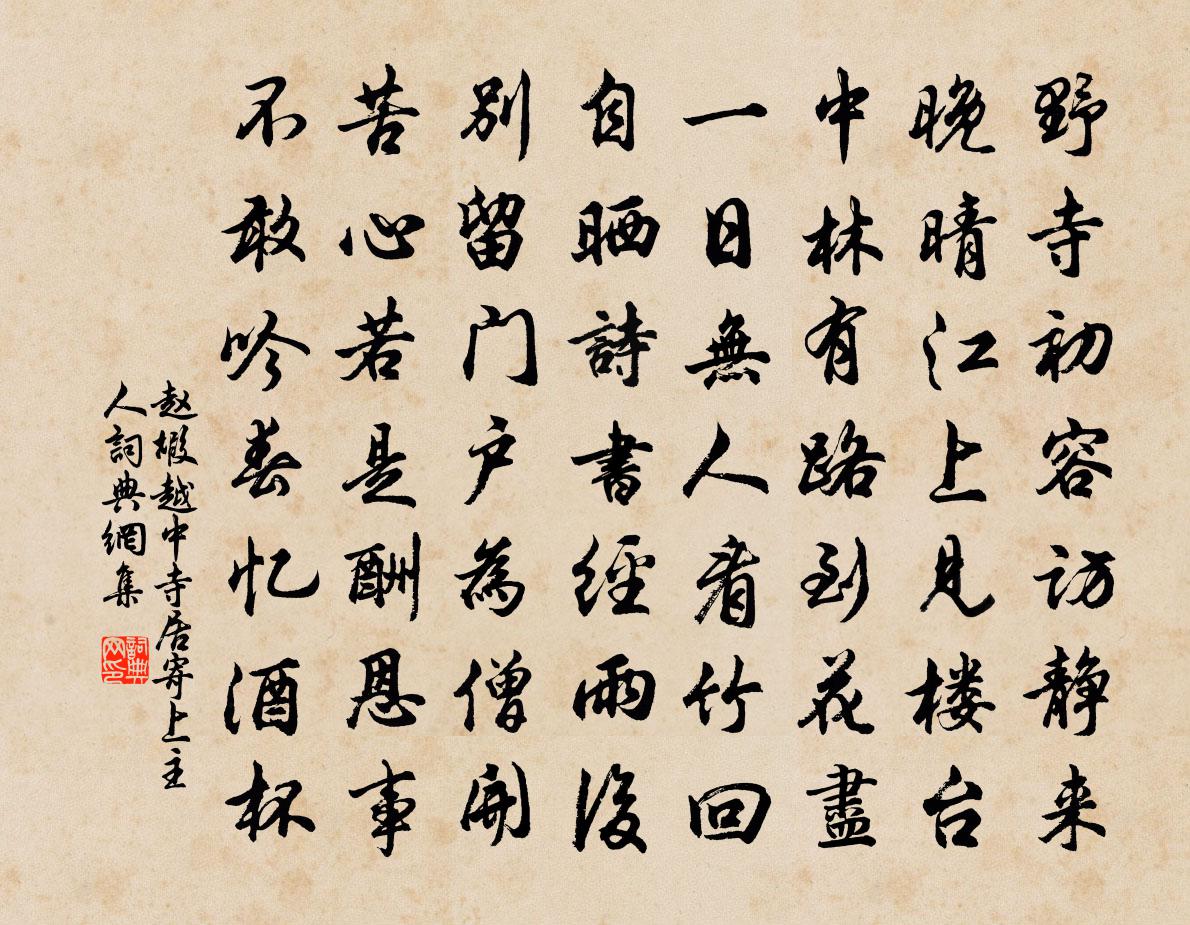 野寺初容访静来
晚晴江上见楼台
中林有路到花盡
一日無人看竹回
自晒詩書經雨後
别留门户為僧開
苦心若是酬恩事
不敢吟春忆酒杯
赵嘏越中寺居寄上主
人詞典網集
詞典网印